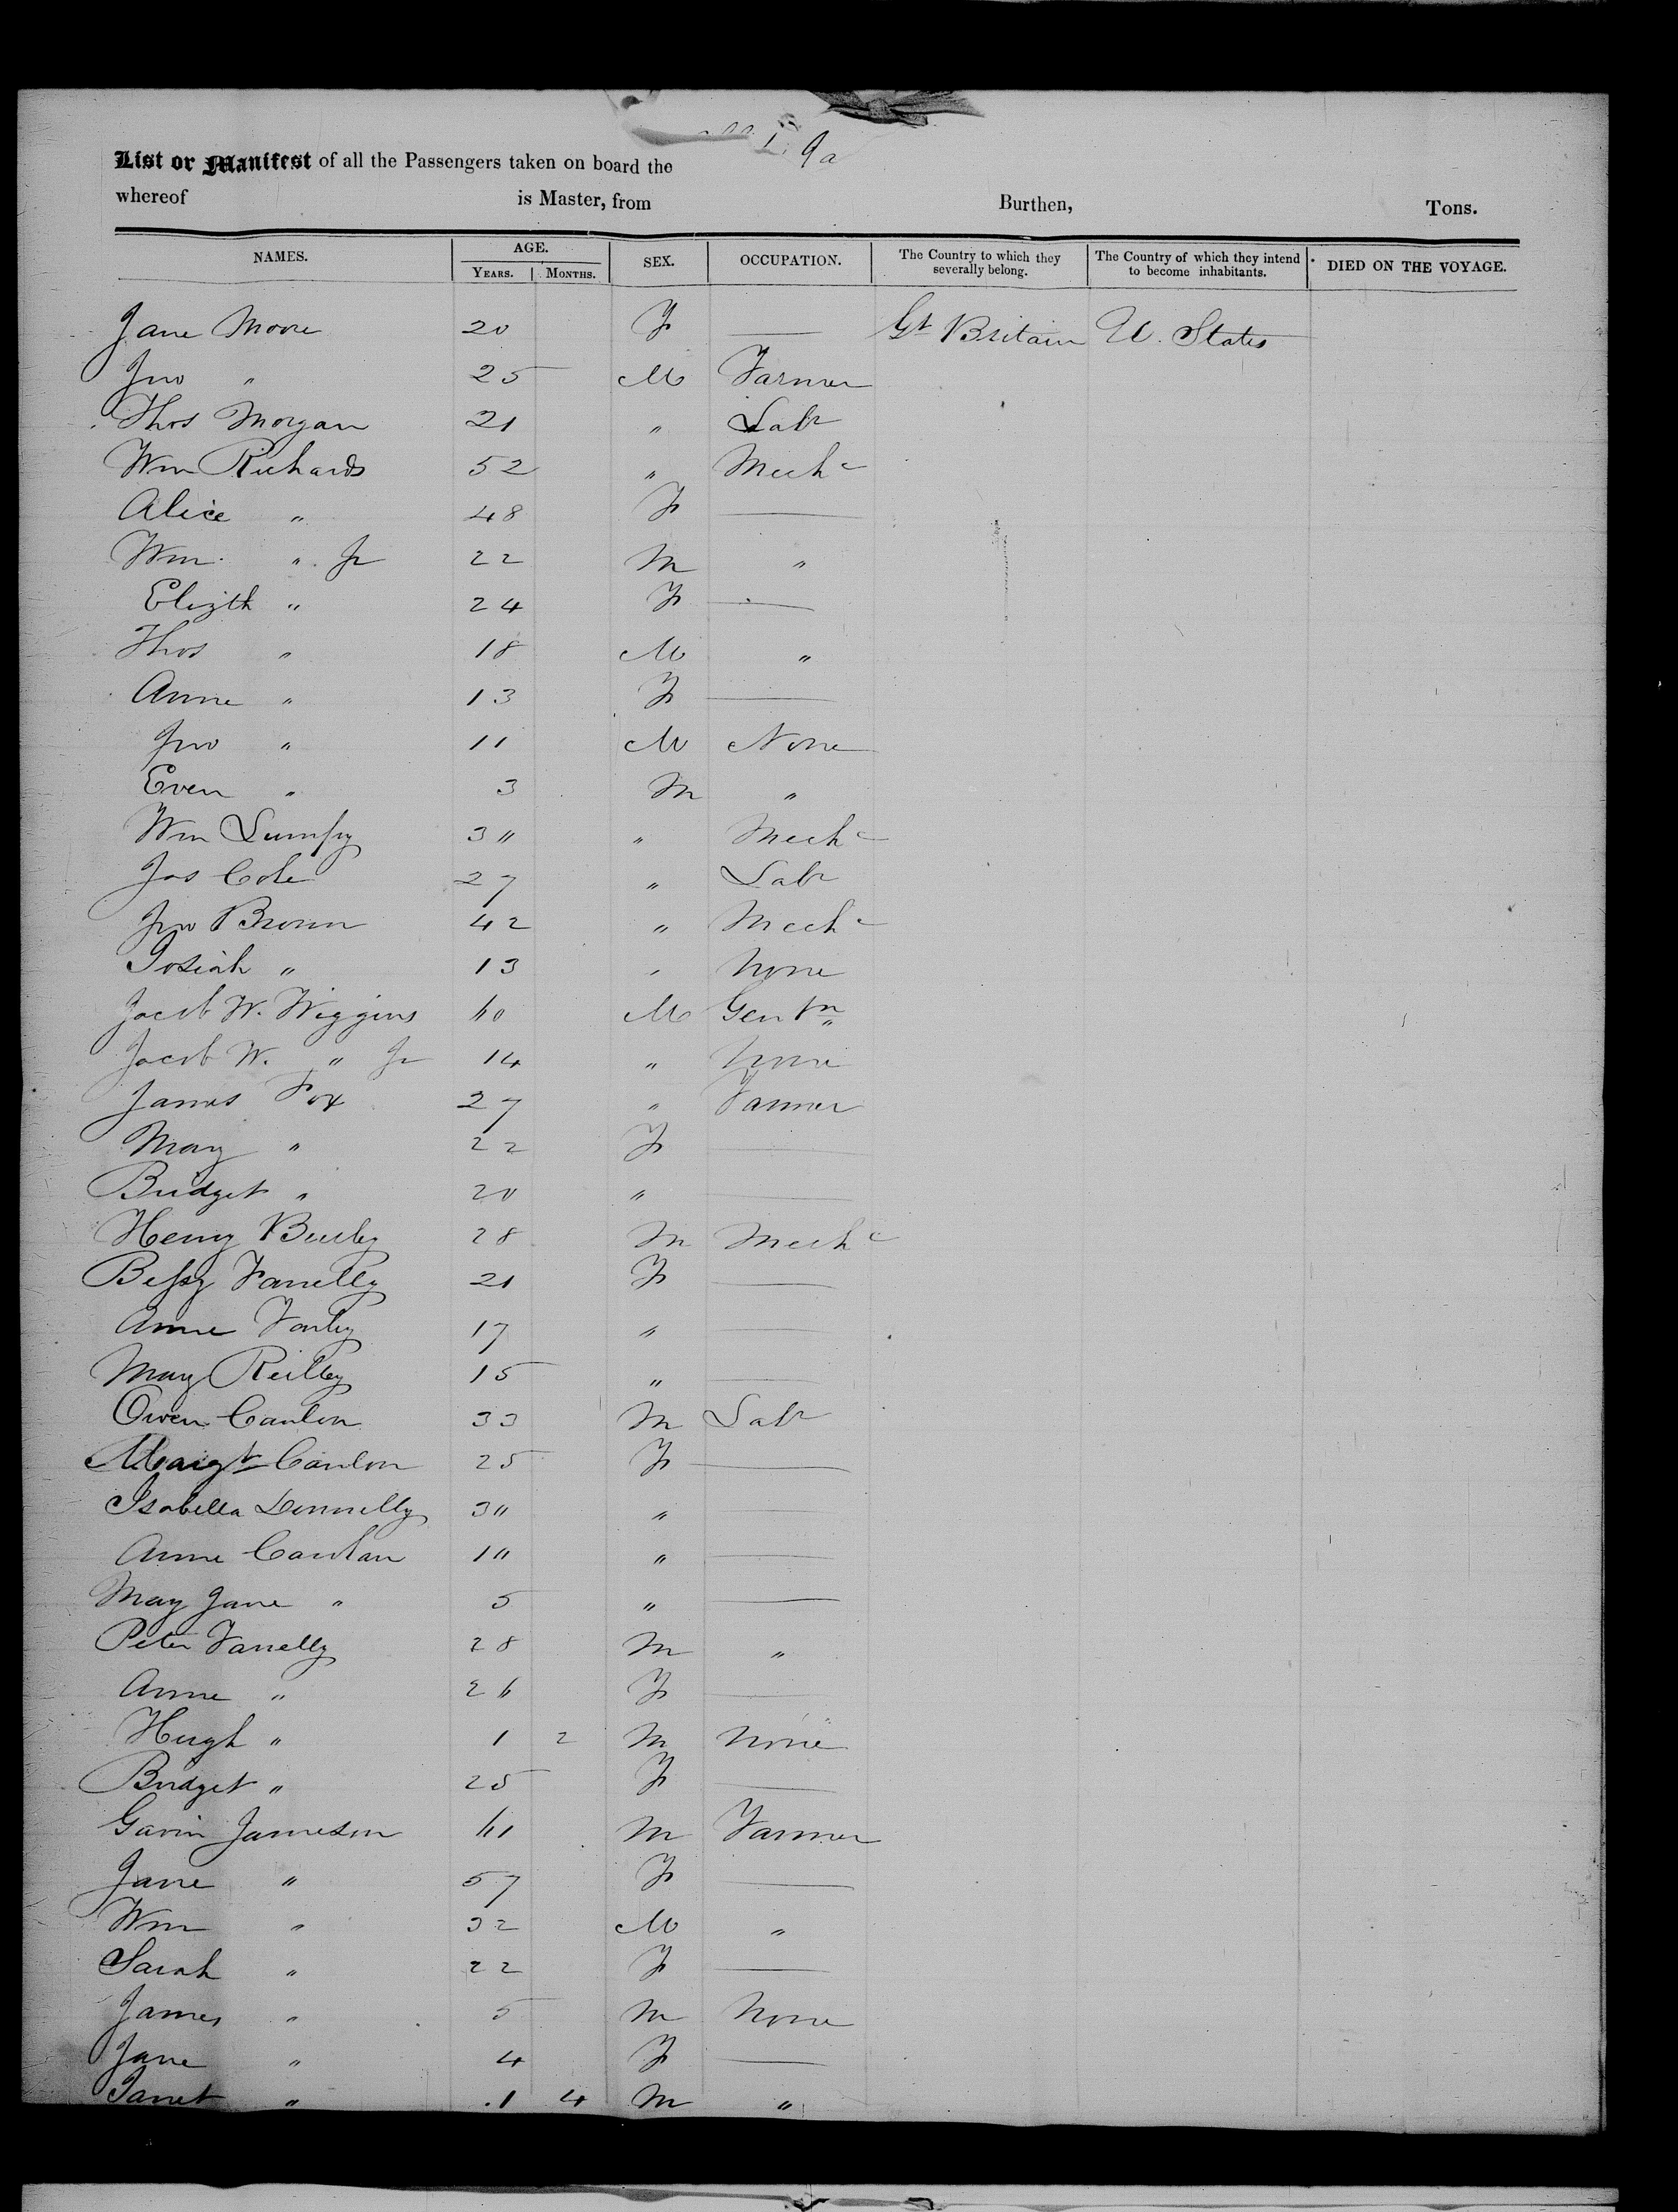 9a
List or Manifest of all the Passengers taken on board the
whereof is Master, from Burthen, Tons.
NAMES. AGE. YEARS. MONTHS. SEX. OCCUPATION. The Country to which they severally belong. The Country of which they intend to become inhabitants. DIED ON THE VOYAGE.
Jane Moore 20 F — Gt Britain U. States
Jno " 25 M Farmer
Thos Morgan 21 " Labr
Wm Richards 52 " Mechc
Alice " 48 F —
Wm " Jr 22 M "
Elizth " 24 F —
Thos " 18 M "
Anne " 13 F —
Jno " 11 M None
Even " 3 M "
Wm 3" " Mechc
Jas Cole 27 " Labr
Jno Brown 42 " Mechc
Josiah " 13 " None
Jacob W. Wiggins 60 M Gentn
Jacob W. " Jr 14 " None
James Fox 27 " Farmer
Mary " 22 F —
Bridget " 20 " —
Henry 28 M Mechc
Bessy Farrelly 21 F —
Anne Farley 17 " —
Mary Reilley 15 " —
Owen Canlon 33 M Labr
Margt Canlon 25 F —
Isabella Donnelly 3" " —
Anne Canlan 1" " —
Mary Jane " 5 " —
Peter Farrelly 28 M "
Anne " 26 F —
Hugh " 1 2 M None
Bridget " 25 F —
Gavin Jameson 61 M Farmer
Jane " 57 F —
Wm " 32 M "
Sarah " 22 F —
James " 5 M None
Jane " 4 F —
Janet " 1 4 M "